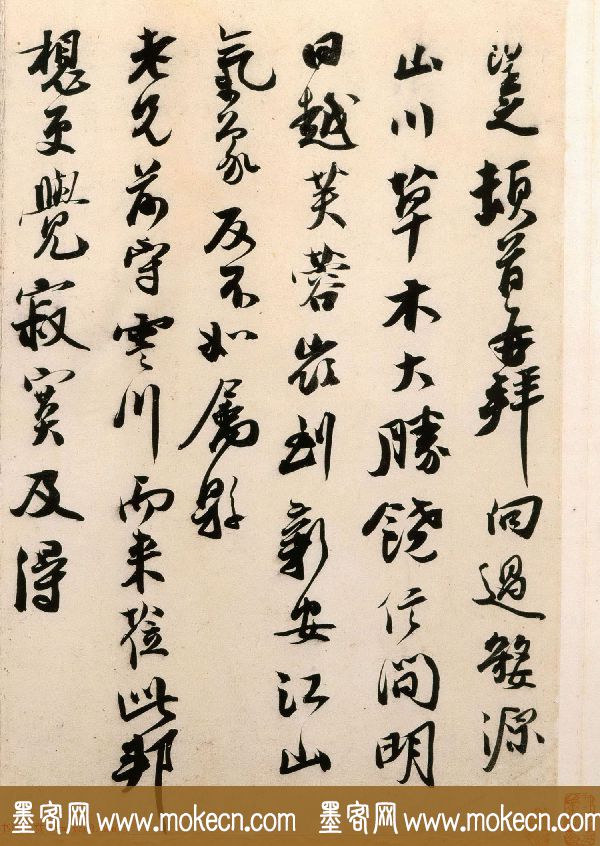 頓首再拜向過婺源
山川草木大勝饒信間明
日越芙蓉嶺到新安江山
氣象反不如屬縣
老兄前守霅川而來蒞此邦
想更覺寂寞及得
墨客网 www.mokecn.com 墨客网 www.mokecn.com